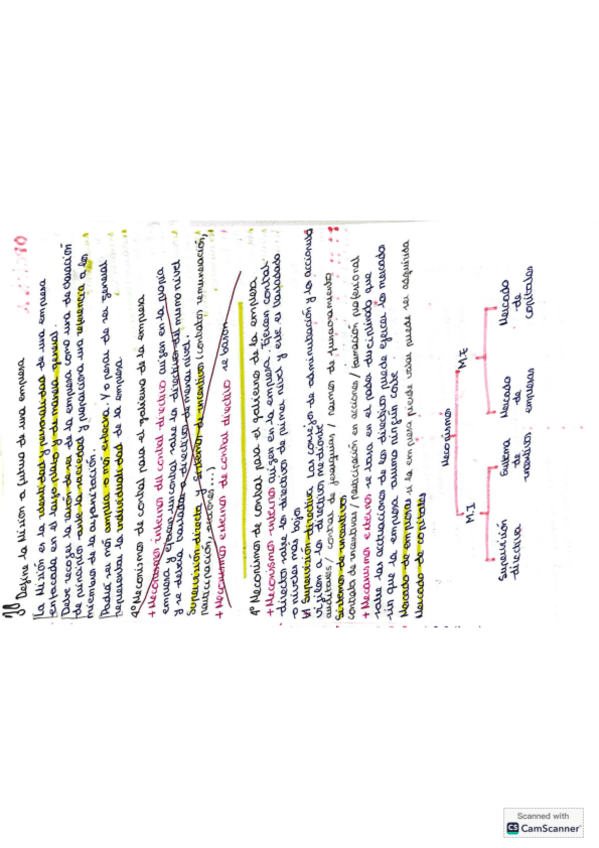 3º Define la Misión o futuro de una empresa
La Misión en la identidad y personalidad de una empresa
enfocada en el largo plazo y de manera general.
Debe recoger la razón de ser de la empresa como una declaración
de principios ante la sociedad y proporciona una referencia a los
miembros de la organización.
Podrá ser más amplia o más estrecha. Y a pesar de ser general
representar la individualidad de la empresa.
4º Mecanismos de control para el gobierno de la empresa
+ Mecanismos internos del control directivo surgen en la propia
empresa y ejercen un control sobre los directivos del mismo nivel
y se debería trasladar a directivos de menor nivel.
Supervisión directa y sistemas de incentivos (contratos, remuneración,
participación, acciones...)
+ Mecanismos externos de control directivo se basan
4º Mecanismos de control para el gobierno de la empresa
+ Mecanismos internos surgen en la empresa. Ejercen control
directos sobre los directivos de primer nivel y este es trasladado
a niveles más bajos
Supervisión directiva. Los consejos de administración y los accionistas
vigilan a los directivos mediante
auditorías / control de jerarquías / normas de funcionamiento
Sistemas de incentivos
contrato de incentivos / participación en acciones / formación profesional
+ Mecanismos externos se basa en el poder disciplinado que
sobre las actuaciones de los directivos puede ejercer los mercados
sin que la empresa asuma ningún coste.
Mercado de empresas si la empresa pierde valor puede ser adquirida
Mercado de capitales
Mecanismos
M.I
M.E
Supervisión
directiva
Sistema
de
incentivos
Mercado
de
empresas
Mercado
de
capitales
Scanned with
CS CamScanner